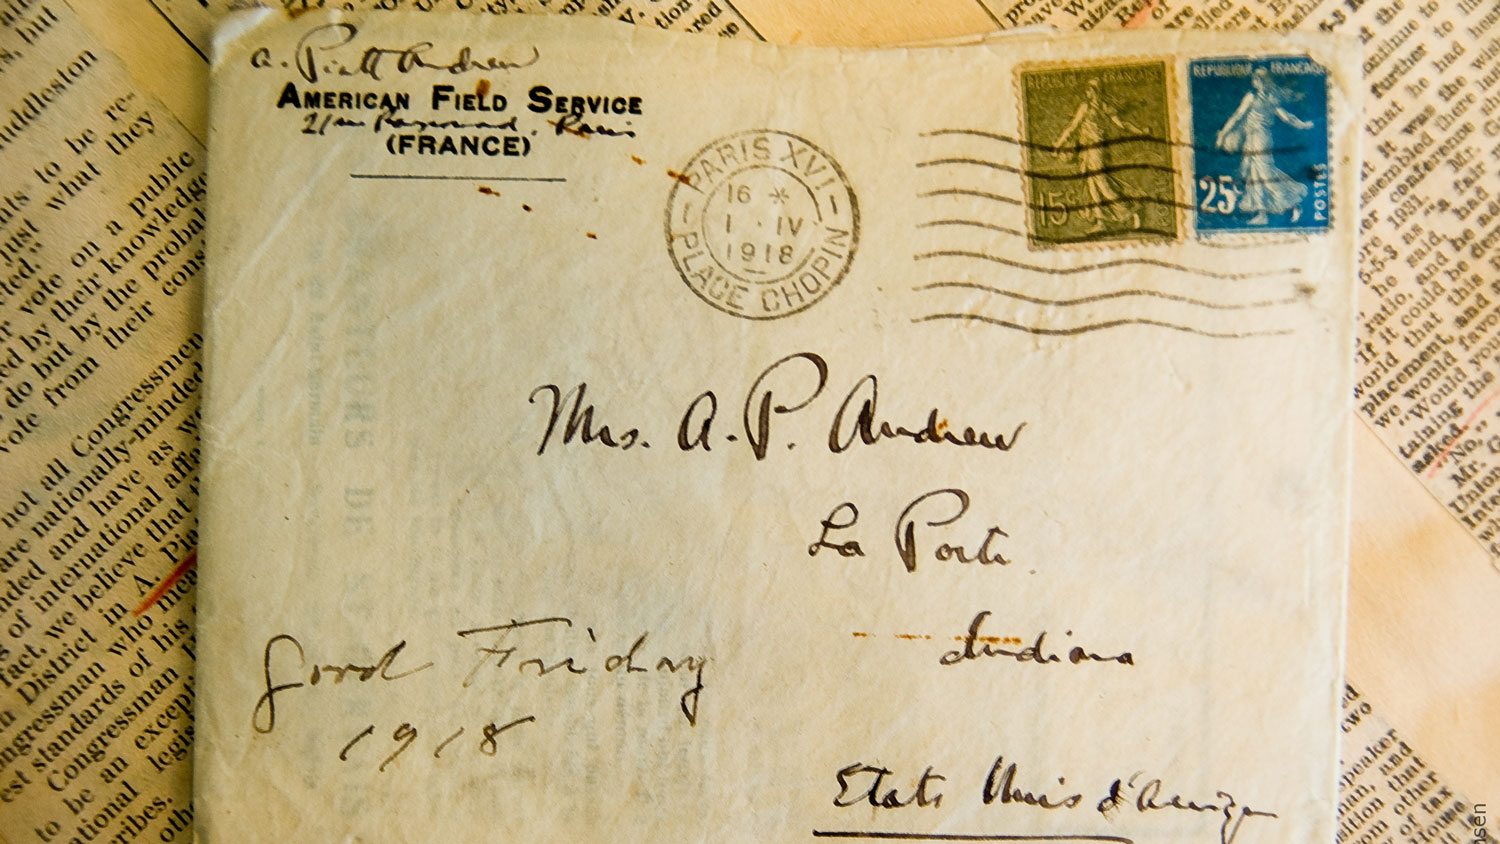 A. Piatt Andrew
AMERICAN FIELD SERVICE
21 rue Raynouard, Paris
(FRANCE)
PARIS XVI
16 *
1 · IV
1918
PLACE CHOPIN
REPUBLIQUE FRANÇAISE
15c
REPUBLIQUE FRANÇAISE
25c
POSTES
Mrs. A. P. Andrew
La Porte
Indiana
Etats Unis d'Amérique
Good Friday
1918
uddleston
nts to be re-
just what they
r vote on a public
ed by their knowledge
do but by the probal
vote from their cons
not all Congressmen
are nationally-minded
nded and have as w
s of international affa
fact, we believe that
n District in A. Pia
ngressman who mea
est standards of his
Congressman
to be an except
ational legis
ribes.
further to
that he had hea
it was the wish
ssembled there last
er conference
ore 1931. Mr. G
5-5-3 as "a fair
he said, had
ratio, and be adj
If it could be den
world that this p
placement, and s
we would favo
"Would you
taining the
asked
"No,"
Mr. G
Union
two
speaker
man, and
sition that
om of tax
House
nsen